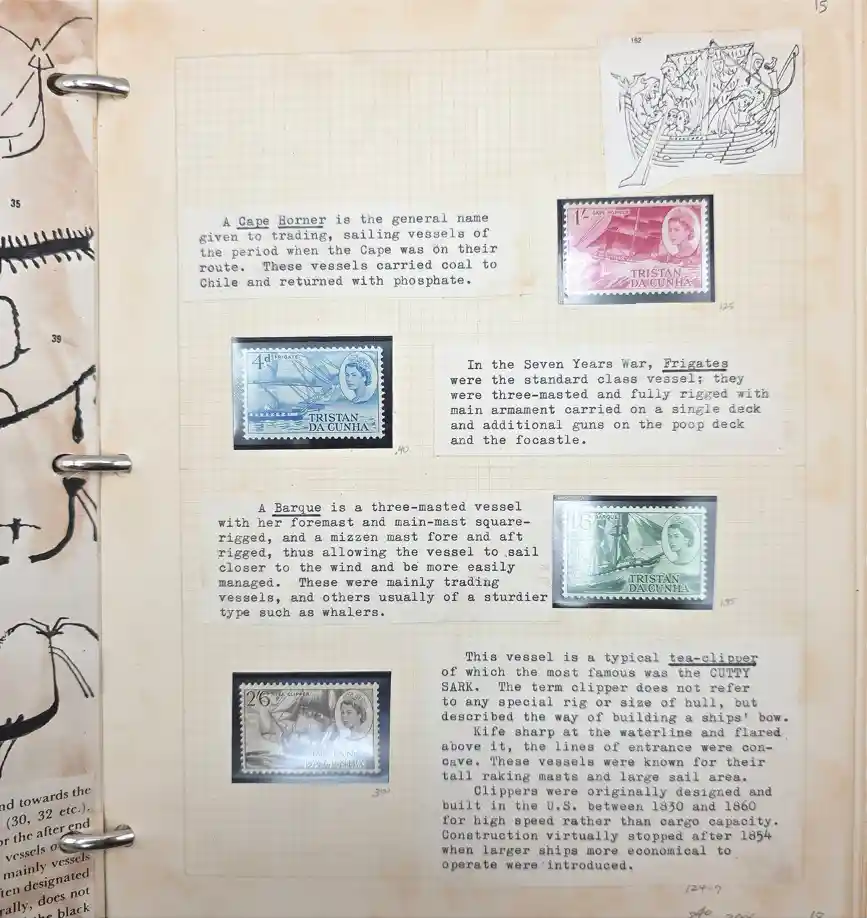 15
162
35
39
A Cape Horner is the general name
given to trading, sailing vessels of
the period when the Cape was on their
route. These vessels carried coal to
Chile and returned with phosphate.
1/-
CAPE HORNER
TRISTAN
DA CUNHA
125
4d
FRIGATE
TRISTAN
DA CUNHA
.40
In the Seven Years War, Frigates
were the standard class vessel; they
were three-masted and fully rigged with
main armament carried on a single deck
and additional guns on the poop deck
and the focastle.
A Barque is a three-masted vessel
with her foremast and main-mast square-
rigged, and a mizzen mast fore and aft
rigged, thus allowing the vessel to sail
closer to the wind and be more easily
managed. These were mainly trading
vessels, and others usually of a sturdier
type such as whalers.
BARQUE
TRISTAN
DA CUNHA
2/6
TEA CLIPPER
This vessel is a typical tea-clipper
of which the most famous was the CUTTY
SARK. The term clipper does not refer
to any special rig or size of hull, but
described the way of building a ships' bow.
Kife sharp at the waterline and flared
above it, the lines of entrance were con-
cave. These vessels were known for their
tall raking masts and large sail area.
Clippers were originally designed and
built in the U.S. between 1830 and 1860
for high speed rather than cargo capacity.
Construction virtually stopped after 1854
when larger ships more economical to
operate were introduced.
124-7
nd towards the
(30, 32 etc.).
or the after end
vessels
mainly vessels
ten designated
rally, does not
the black